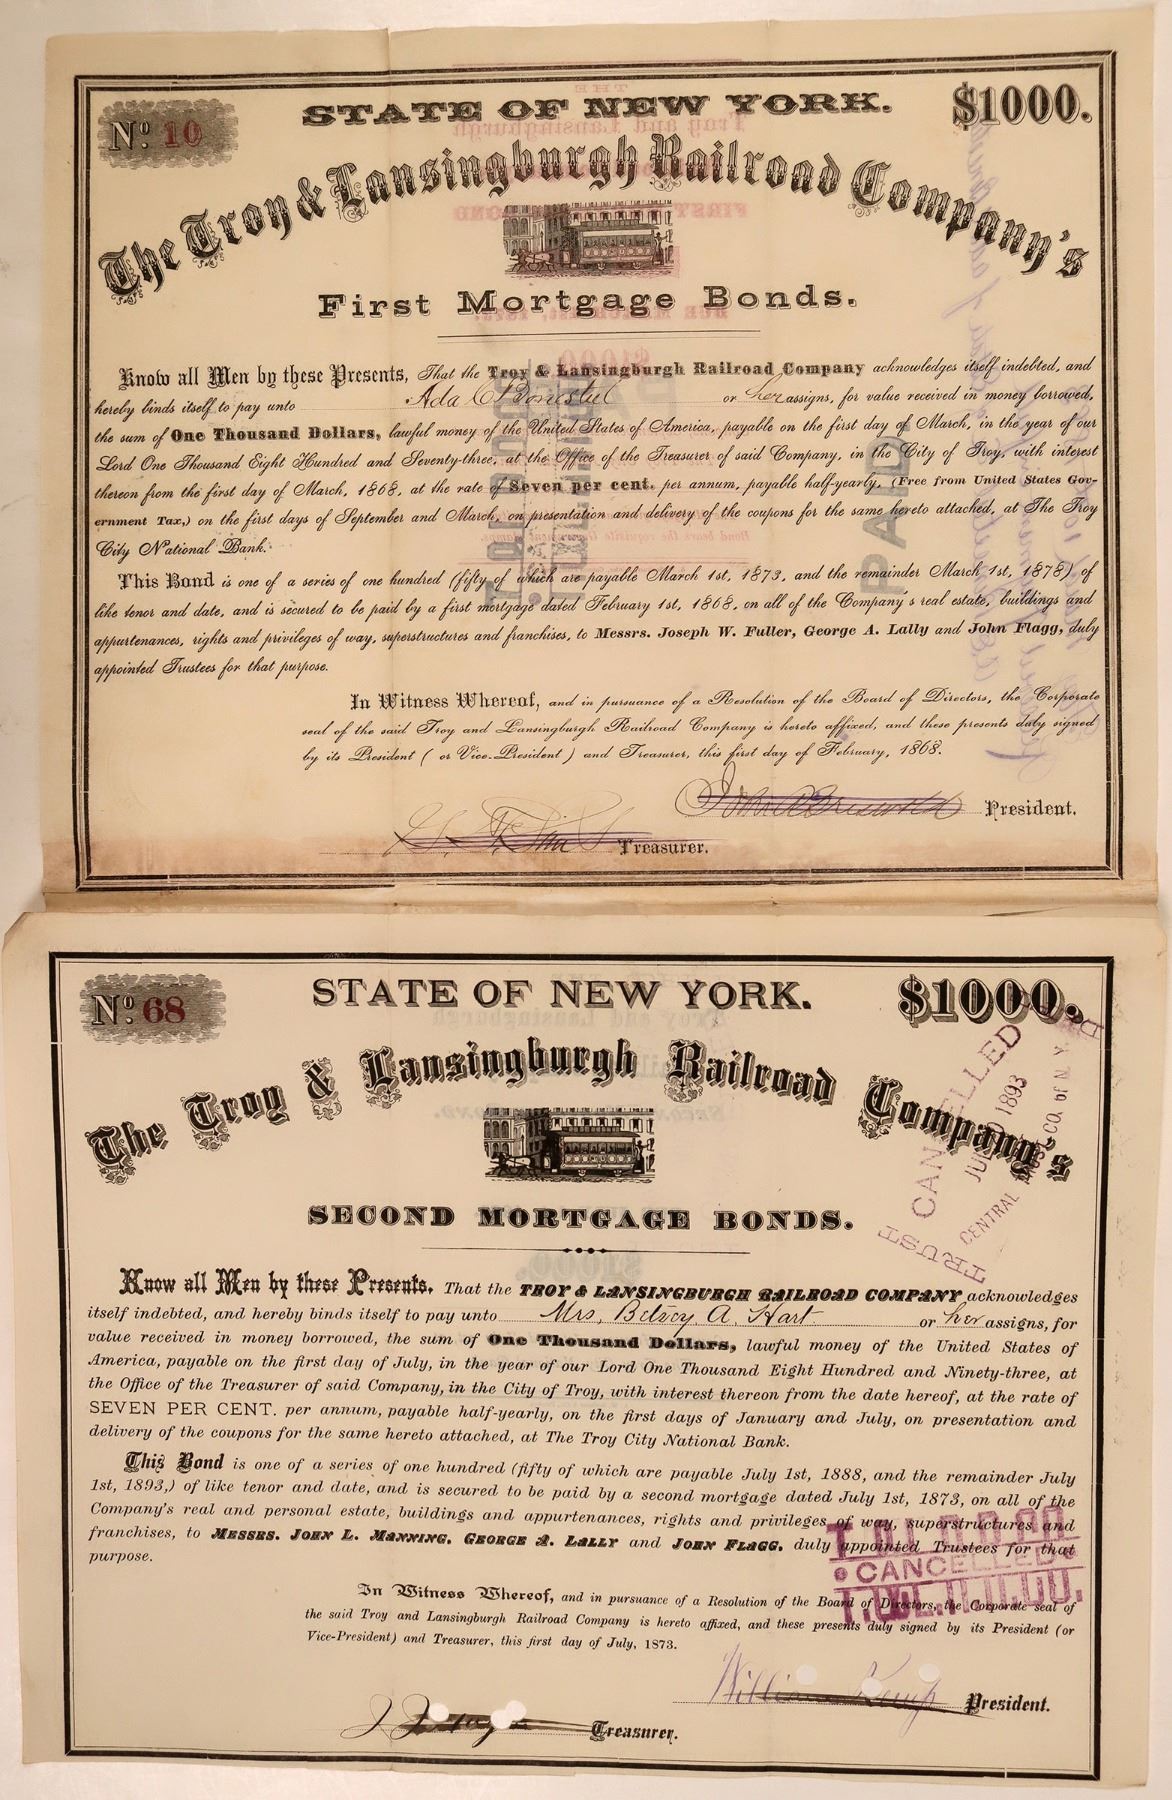 STATE OF NEW YORK.
No. 10
$1000.
The Troy & Lansingburgh Railroad Company's
First Mortgage Bonds.
Know all Men by these Presents, That the Troy & Lansingburgh Railroad Company acknowledges itself indebted, and
hereby binds itself to pay unto Ada C Bonestel or her assigns, for value received in money borrowed,
the sum of One Thousand Dollars, lawful money of the United States of America, payable on the first day of March, in the year of our
Lord One Thousand Eight Hundred and Seventy-three, at the Office of the Treasurer of said Company, in the City of Troy, with interest
thereon from the first day of March, 1868, at the rate of Seven per cent. per annum, payable half-yearly, (Free from United States Gov-
ernment Tax,) on the first days of September and March, on presentation and delivery of the coupons for the same hereto attached, at The Troy
City National Bank.
This Bond is one of a series of one hundred (fifty of which are payable March 1st, 1873, and the remainder March 1st, 1878) of
like tenor and date, and is secured to be paid by a first mortgage dated February 1st, 1868, on all of the Company's real estate, buildings and
appurtenances, rights and privileges of way, superstructures and franchises, to Messrs. Joseph W. Fuller, George A. Lally and John Flagg, duly
appointed Trustees for that purpose.
In Witness Whereof, and in pursuance of a Resolution of the Board of Directors, the Corporate
seal of the said Troy and Lansingburgh Railroad Company is hereto affixed, and these presents duly signed
by its President (or Vice-President) and Treasurer, this first day of February, 1868.
John A Griswold President.
Treasurer.
PAID
STATE OF NEW YORK.
No. 68
$1000.
The Troy & Lansingburgh Railroad Company's
SECOND MORTGAGE BONDS.
CANCELLED
JUL 1893
CENTRAL TRUST CO. of N.Y.
Know all Men by these Presents, That the TROY & LANSINGBURGH RAILROAD COMPANY acknowledges
itself indebted, and hereby binds itself to pay unto Mrs. Betsey A. Hart or her assigns, for
value received in money borrowed, the sum of One Thousand Dollars, lawful money of the United States of
America, payable on the first day of July, in the year of our Lord One Thousand Eight Hundred and Ninety-three, at
the Office of the Treasurer of said Company, in the City of Troy, with interest thereon from the date hereof, at the rate of
SEVEN PER CENT. per annum, payable half-yearly, on the first days of January and July, on presentation and
delivery of the coupons for the same hereto attached, at The Troy City National Bank.
This Bond is one of a series of one hundred (fifty of which are payable July 1st, 1888, and the remainder July
1st, 1893,) of like tenor and date, and is secured to be paid by a second mortgage dated July 1st, 1873, on all of the
Company's real and personal estate, buildings and appurtenances, rights and privileges of way, superstructures and
franchises, to MESSRS. JOHN L. MANNING, GEORGE A. LALLY and JOHN FLAGG, duly appointed Trustees for that
purpose.
CANCELLED
In Witness Whereof, and in pursuance of a Resolution of the Board of Directors, the Corporate seal of
the said Troy and Lansingburgh Railroad Company is hereto affixed, and these presents duly signed by its President (or
Vice-President) and Treasurer, this first day of July, 1873.
William Kemp President.
Treasurer.